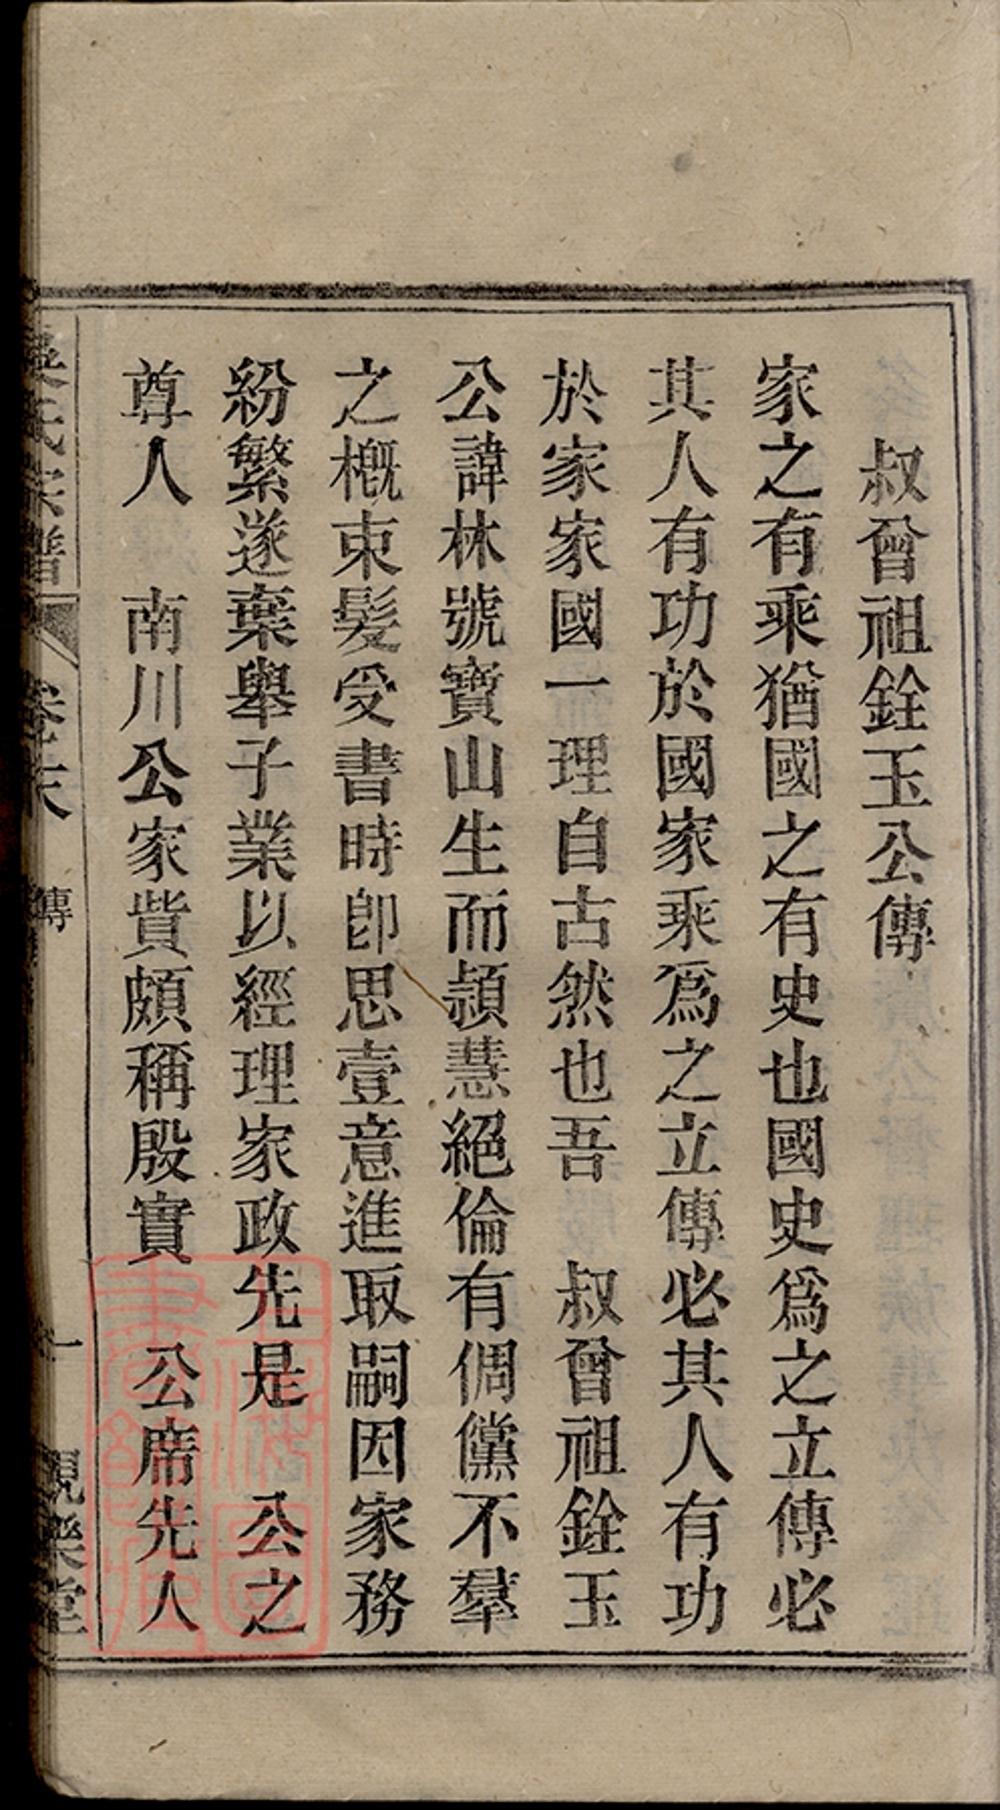 叔曾祖銓玉公傳
家之有乘猶國之有史也國史爲之立傳必
其人有功於國家乘爲之立傳必其人有功
於家家國一理自古然也吾　叔曾祖銓玉
公諱林號寶山生而頴慧絕倫有倜儻不羣
之槪束髮受書時卽思壹意進取嗣因家務
紛繁遂棄舉子業以經理家政先是　公之
尊人　南川公家貲頗稱殷實　公席先人
氏宗譜　卷末　傳　一　樂堂